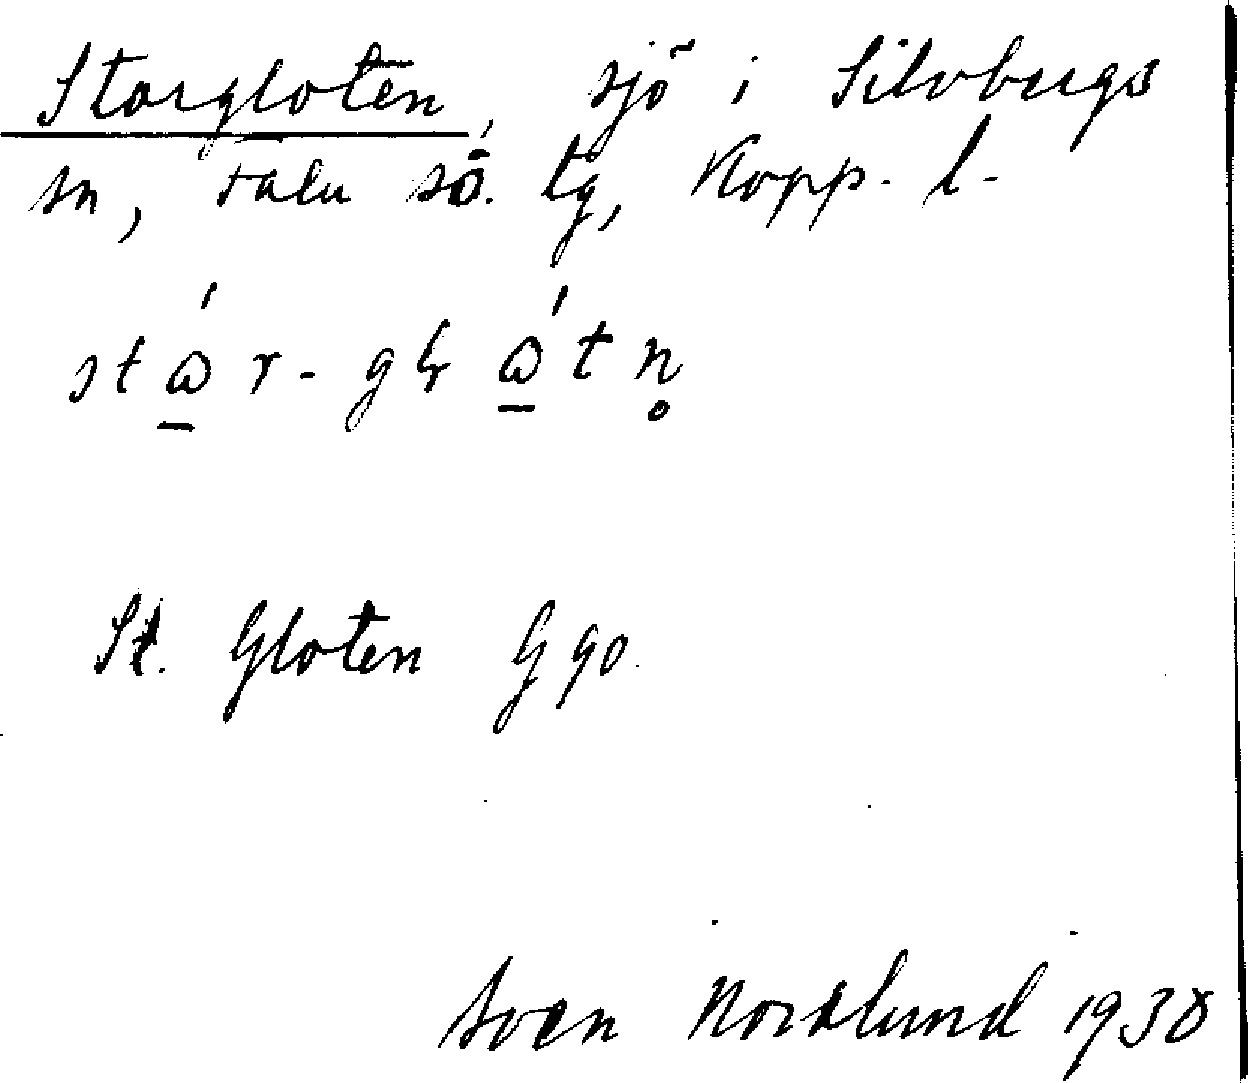 Storgloten, sjö i Silvbergs
sn, Falu sö. tg, Kopp. l.
stώ̲r-glώ̲tn̥
St. Gloten G 90.
Sven Nordlund 1938